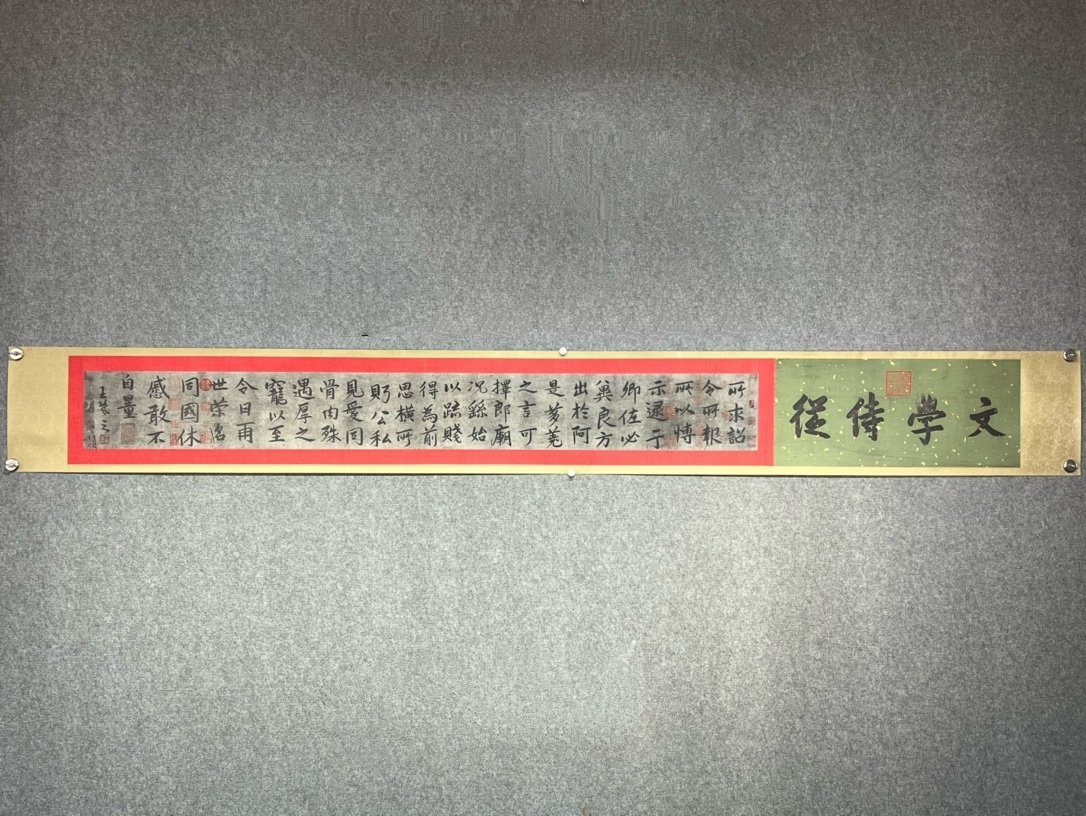 文學侍從
所求詔
令所報
所以博
示逮于
卿佐必
冀良方
出於阿
是芻蕘
之言可
擇郎廟
況繇始
以疏賤
得為前
思橫所
眄公私
見愛同
骨肉殊
遇厚之
寵以至
令日再
世榮名
同國休
慼敢不
自量